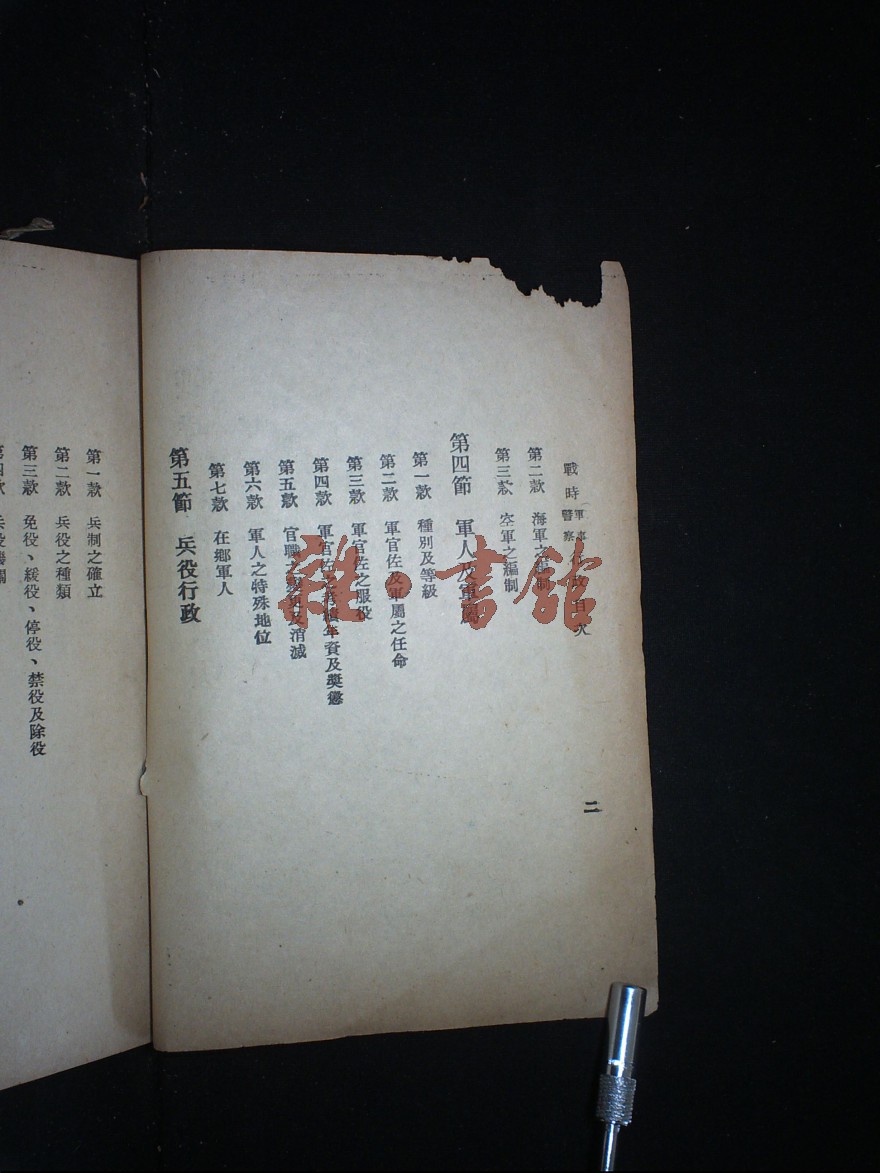 戰時軍事警察行政目次
第二款　海軍之編制
第三款　空軍之編制
第四節　軍人及軍屬
第一款　種別及等級
第二款　軍官佐及軍屬之任命
第三款　軍官佐之服役
第四款　軍官佐之考績年資及獎懲
第五款　官職之變更及消滅
第六款　軍人之特殊地位
第七款　在鄉軍人
第五節　兵役行政
二
第一款　兵制之確立
第二款　兵役之種類
第三款　免役、緩役、停役、禁役及除役
雜·書館